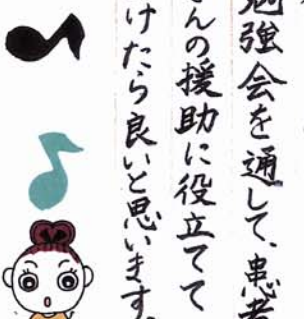 勉強会を通して、患者
さんの援助に役立てて
けたら良いと思います。